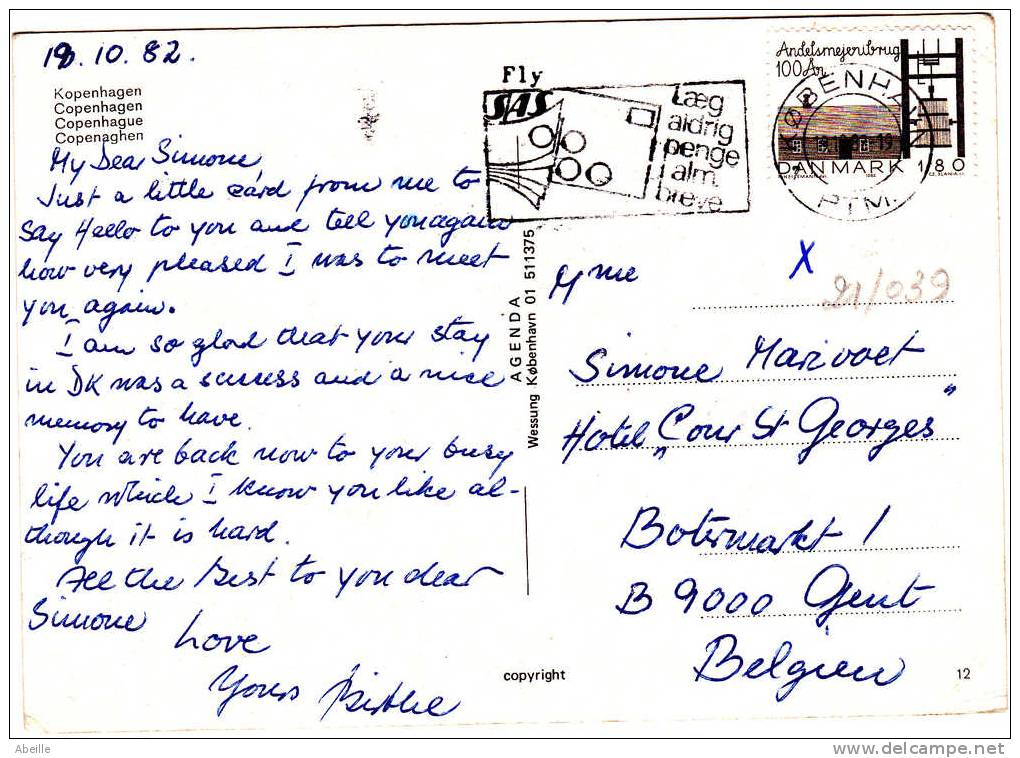 18.10.82.
Kopenhagen
Copenhagen
Copenhague
Copenaghen
My Dear Simone
Just a little card from me to
say Hello to you and tell you again
how very pleased I was to meet
you again.
I am so glad that your stay
in DK was a success and a nice
memory to have.
You are back now to your busy
life which I know you like al-
though it is hard.
All the Best to you dear
Simone
Love
Yours Birthe
AGENDA
Wessung København 01 511375
copyright
12
Fly
SAS
Læg
aldrig
penge
i alm.
breve
Andelsmejeribrug
100 År
DANMARK 1 80
KØBENHAVN
PTM.
X
21/039
Mme
Simone Marivoet
Hotel „Cour St Georges"
Botermarkt 1
B 9000 Gent
Belgien
Abeille
www.delcampe.net